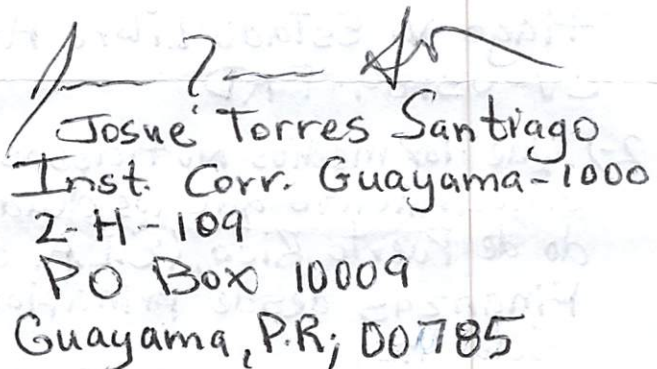 Josué Torres Santiago
Inst. Corr. Guayama-1000
2-H-109
PO Box 10009
Guayama, P.R; 00785